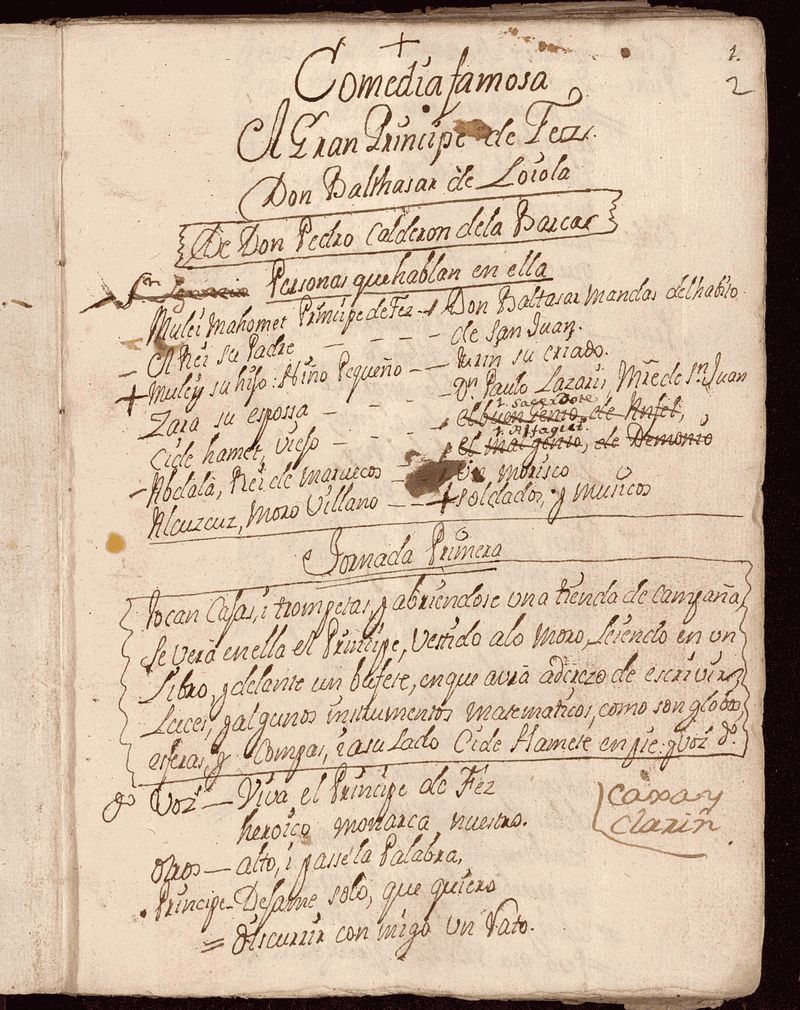 1.
2
Comedia famosa
El Gran Principe de Fez.
Don Balthasar de Loiola
De Don Pedro Calderon dela Barca
Personas que hablan en ella
Mulei Mahomet Principe de Fez
El Rei su Padre
Muley su hijo. Niño Pequeño
Zara su espossa
Cide hamet, viejo
Abdalà, Rei de marruecos
Alcuzcuz, Moro Villano
Don Baltasar Mandas del habito
de san Juan.
turin su criado.
Dn. Paulo Lazari, Mre de Sn. Juan
1. Sacerdote
el buen genio, de Anjel,
1.
el mal genio, de Demonio
Un morisco
soldados, y musicos
Jornada Primera
tocan Cajas, i trompetas, y abriendose una tienda de campaña,
se vera en ella el Principe, Vestido alo Moro, Leiendo en un
Libro, y delante un bufete, en que avrà aderezo de escrivir,
Luces, y algunos instrumentos matematicos, como son globos
esferas, y Compas, i a su Lado Cide Hamete en pie. y Voz do.
do Voz — Viva el Principe de Fez
heroico monarca nuestro.
caxa y
clarin
otros — alto, i passe la Palabra,
Principe — Dejame solo, que quiero
= discurrir con migo un rato.